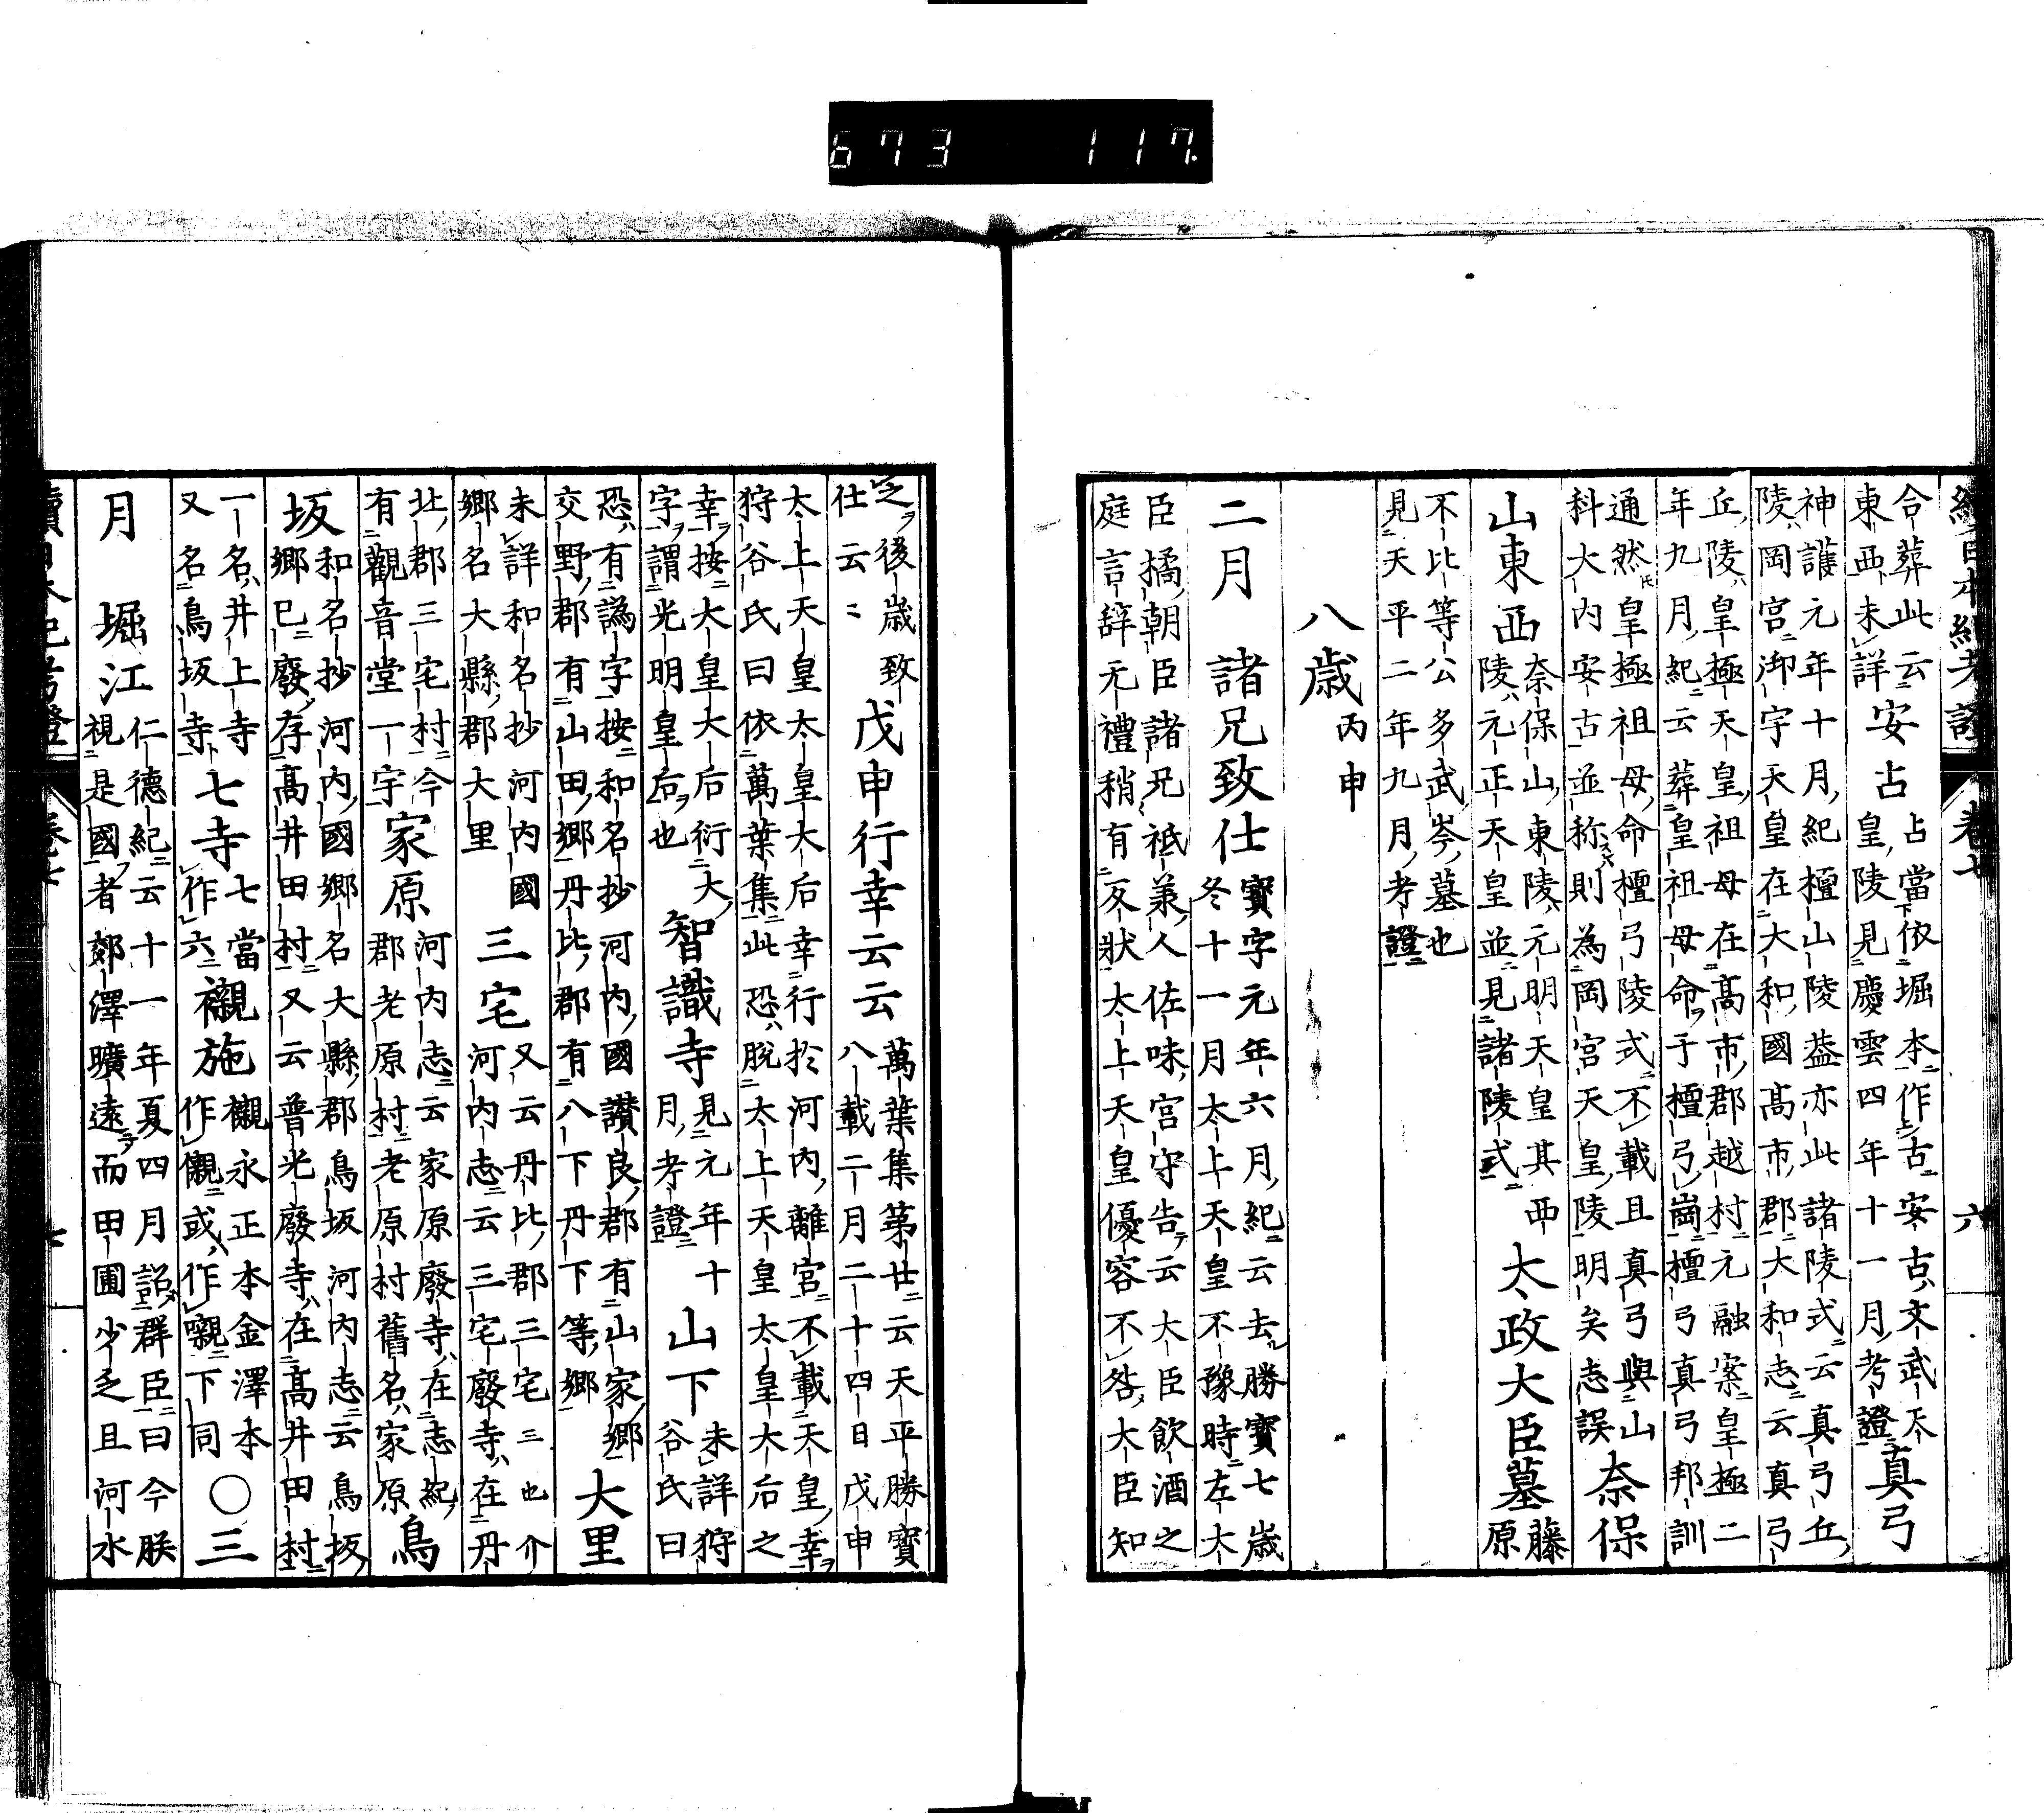 673 117.
續日本紀考證 卷七 六
合葬此云安占占當依堀本作古安古文武天
東西未詳 皇陵見慶雲四年十一月考證 真弓
神護元年十月紀檀山陵葢亦此諸陵式云真弓丘
陵岡宮御宇天皇在大和國高市郡大和志云真弓
丘陵皇極天皇祖母在高市郡越村元融案皇極二
年九月紀云葬皇祖母命于檀弓崗檀弓真弓邦訓
通然皇極祖母命檀弓陵式不載且真弓與山
科大内安古並称則為岡宮天皇陵明矣志誤 奈保
山東西 奈保山東陵元明天皇其西
陵元正天皇並見諸陵式 太政大臣墓 藤原
不比等公多武岑墓也
見天平二年九月考證
八歲 丙申
二月 諸兄致仕 寶字元年六月紀云去勝寶七歲
冬十一月太上天皇不豫時左大
臣橘朝臣諸兄祗兼人佐味宮守告云大臣飲酒之
庭言辞无禮稍有反狀太上天皇優容不咎大臣知
之後歲致
仕云〻 戊申行幸云云 萬葉集第廿云天平勝寶
八載二月二十四日戊申
太上天皇太皇大后幸行於河内離宮不載天皇幸
狩谷氏曰依萬葉集此恐脫太上天皇太皇大后之
幸按大皇大后衍大
字謂光明皇后也 智識寺 見元年十
月考證 山下 未詳狩
谷氏曰
恐有譌字按和名抄河内國讃良郡有山家鄉
交野郡有山田鄉丹比郡有八下丹下等鄉 大里
未詳和名抄河内國
鄉名大縣郡大里 三宅 又云丹比郡三宅三也介
河内志云三宅廢寺在丹
北郡三宅村今
有觀音堂一宇 家原 河内志云家原廢寺在志紀
郡老原村老原村舊名家原 鳥
坂 和名抄河内國鄉名大縣郡鳥坂河内志云鳥坂
鄉已廢存高井田村又云普光廢寺在高井田村
一名井上寺
又名鳥坂寺 七寺 七當
作六 襯施 襯永正本金澤本
作儭或作嚫下同 ○三
月 堀江 仁德紀云十一年夏四月詔群臣曰今朕
視是國者郊澤曠遠而田圃少乏且河水
續日本紀考證 卷七 七